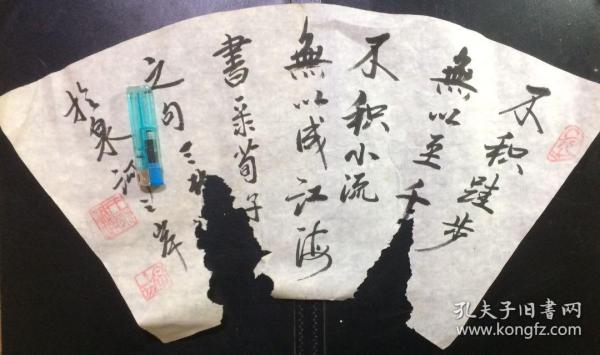 不积跬步
無以至千
不积小流
無以成江海
書录荀子
之句
於泉河之岸
孔夫子旧书网
www.kongfz.com